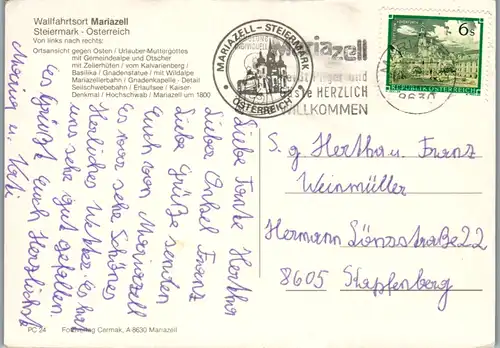 Wallfahrtsort Mariazell
Steiermark - Österreich
Von links nach rechts:
Ortsansicht gegen Osten / Urlauber-Muttergottes
mit Gemeindealpe und Ötscher
mit Zeilerhüten / vom Kalvarienberg /
Basilika / Gnadenstatue / mit Wildalpe
Mariazellerbahn / Gnadenkapelle - Detail
Seilschwebebahn / Erlaufsee / Kaiser-
Denkmal / Hochschwab / Mariazell um 1800
MARIAZELL – STEIERMARK
ÖSTERREICH
Mariazell
HERZLICH
WILLKOMMEN
8630
6 S
REPUBLIK ÖSTERREICH
Liebe Tante Hertha
Lieber Onkel Franz
Liebe Grüße senden
Euch von Mariazell
Es war sehr Schönes
Herrliches Wetter. Es hat
uns sehr gut gefallen.
Es grüßt Euch Herzlichst
u. Kati
S. g Hertha u. Franz
Weinmüller
Hermann Lönsstraße 22
8605 Kapfenberg
PC 24
Fotoverlag Cermak, A-8630 Mariazell